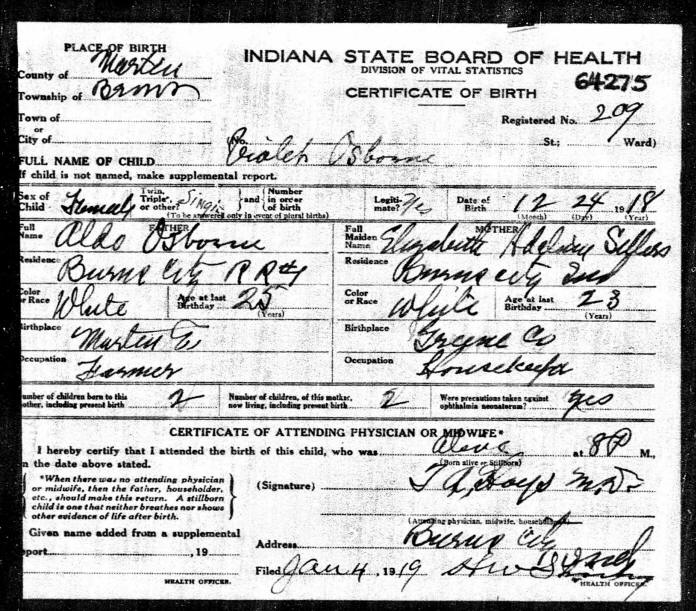 PLACE OF BIRTH
County of Martin
Township of Brown
Town of
or
City of
INDIANA STATE BOARD OF HEALTH
DIVISION OF VITAL STATISTICS
64275
CERTIFICATE OF BIRTH
Registered No. 209
(No. St.; Ward)
FULL NAME OF CHILD Violet Osborne
If child is not named, make supplemental report.
Sex of Child Female Twin, Triplet, or other? Single and Number in order of birth Legiti-mate? Yes Date of Birth 12 24 1918
(To be answered only in event of plural births) (Month) (Day) (Year)
FATHER MOTHER
Full Name Aldo Osborne Full Maiden Name Elizabeth Adeline Sellers
Residence Burns City R R #1 Residence Burns City Ind
Color or Race White Age at last Birthday 25 (Years) Color or Race White Age at last Birthday 23 (Years)
Birthplace Martin Co Birthplace Greene Co
Occupation Farmer Occupation Housekeeper
Number of children born to this mother, including present birth 2 Number of children, of this mother, now living, including present birth 2 Were precautions taken against ophthalmia neonatorum? yes
CERTIFICATE OF ATTENDING PHYSICIAN OR MIDWIFE*
I hereby certify that I attended the birth of this child, who was Alive at 8 P M.,
(Born alive or Stillborn)
on the date above stated.
*When there was no attending physician
or midwife, then the father, householder,
etc., should make this return. A stillborn
child is one that neither breathes nor shows
other evidence of life after birth.
(Signature) M.D.
(Attending physician, midwife, householder)
Given name added from a supplemental
report ,19
HEALTH OFFICER.
Address Burns City
Filed Jan 4, 1919
HEALTH OFFICER.